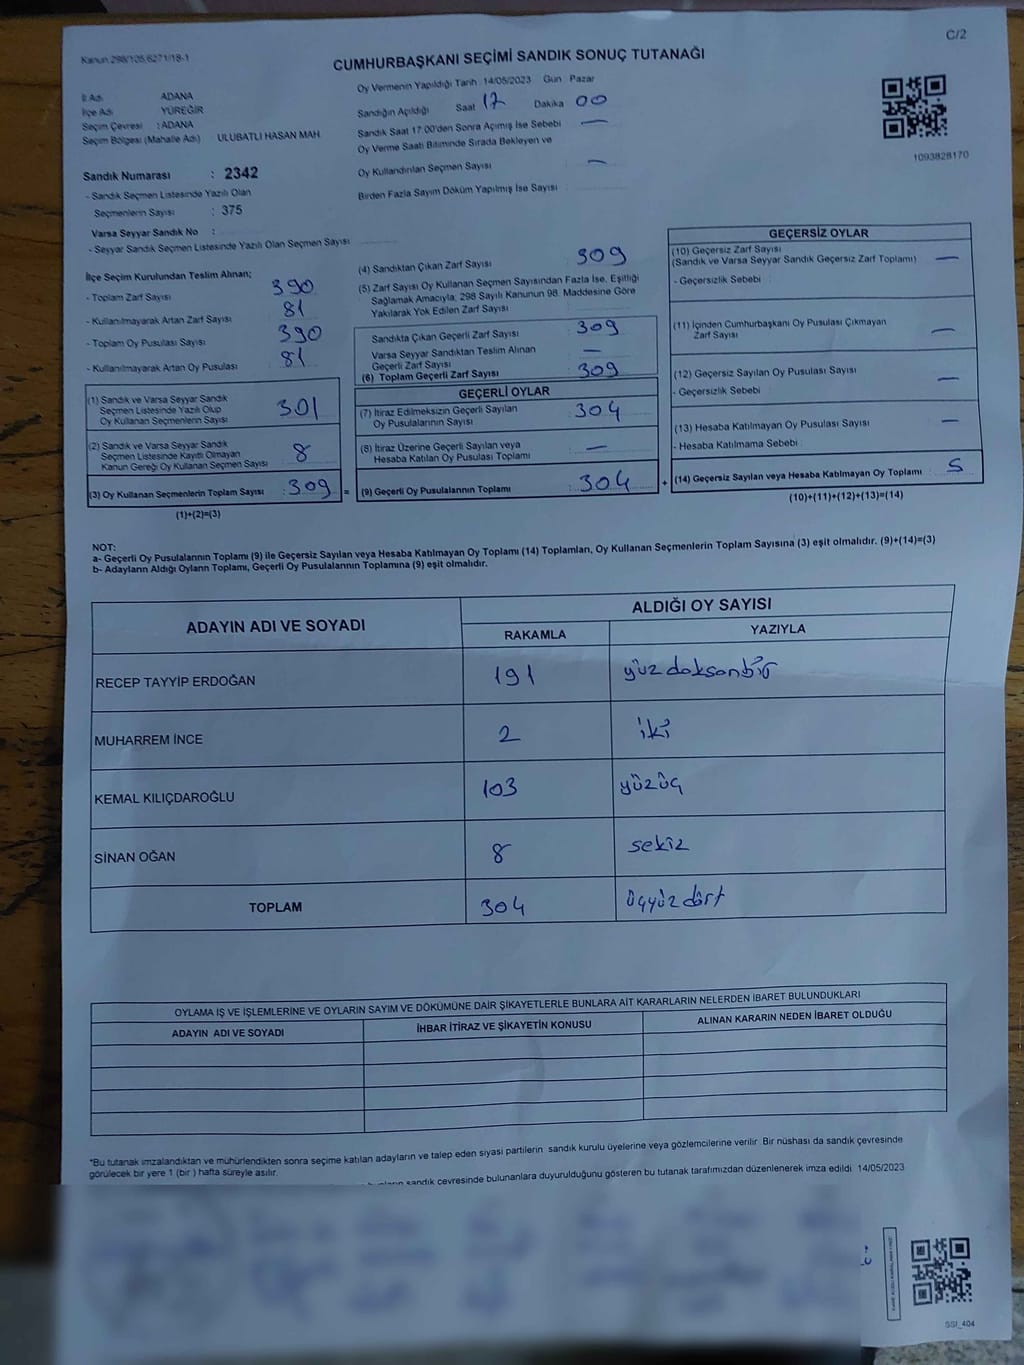 C/2
Kanun 298/105,6271/18-1
CUMHURBAŞKANI SEÇİMİ SANDIK SONUÇ TUTANAĞI
İl Adı ADANA
İlçe Adı YÜREĞİR
Seçim Çevresi : ADANA
Seçim Bölgesi (Mahalle Adı) ULUBATLI HASAN MAH.
Sandık Numarası : 2342
- Sandık Seçmen Listesinde Yazılı Olan
Seçmenlerin Sayısı : 375
Varsa Seyyar Sandık No :
- Seyyar Sandık Seçmen Listesinde Yazılı Olan Seçmen Sayısı
Oy Vermenin Yapıldığı Tarih 14/05/2023 Gün Pazar
Sandığın Açıldığı Saat 17 Dakika 00
Sandık Saat 17.00'den Sonra Açımış İse Sebebi —
Oy Verme Saati Bitiminde Sırada Bekleyen ve
Oy Kullandırılan Seçmen Sayısı —
Birden Fazla Sayım Döküm Yapılmış İse Sayısı
1093828170
İlçe Seçim Kurulundan Teslim Alınan;
- Toplam Zarf Sayısı 390
- Kullanılmayarak Artan Zarf Sayısı 81
- Toplam Oy Pusulası Sayısı 390
- Kullanılmayarak Artan Oy Pusulası 81
(1) Sandık ve Varsa Seyyar Sandık
Seçmen Listesinde Yazılı Olup
Oy Kullanan Seçmenlerin Sayısı 301
(2) Sandık ve Varsa Seyyar Sandık
Seçmen Listesinde Kayıtlı Olmayan
Kanun Gereği Oy Kullanan Seçmen Sayısı 8
(3) Oy Kullanan Seçmenlerin Toplam Sayısı : 309 =
(1)+(2)=(3)
(4) Sandıktan Çıkan Zarf Sayısı 309
(5) Zarf Sayısı Oy Kullanan Seçmen Sayısından Fazla İse, Eşitliği
Sağlamak Amacıyla, 298 Sayılı Kanunun 98. Maddesine Göre
Yakılarak Yok Edilen Zarf Sayısı
Sandıkta Çıkan Geçerli Zarf Sayısı : 309
Varsa Seyyar Sandıktan Teslim Alınan
Geçerli Zarf Sayısı —
(6) Toplam Geçerli Zarf Sayısı : 309
GEÇERLİ OYLAR
(7) İtiraz Edilmeksizin Geçerli Sayılan
Oy Pusulalarının Sayısı : 304
(8) İtiraz Üzerine Geçerli Sayılan veya
Hesaba Katılan Oy Pusulası Toplamı : —
(9) Geçerli Oy Pusulalarının Toplamı : 304 +
GEÇERSİZ OYLAR
(10) Geçersiz Zarf Sayısı
(Sandık ve Varsa Seyyar Sandık Geçersiz Zarf Toplamı) —
- Geçersizlik Sebebi :
(11) İçinden Cumhurbaşkanı Oy Pusulası Çıkmayan
Zarf Sayısı —
(12) Geçersiz Sayılan Oy Pusulası Sayısı —
- Geçersizlik Sebebi :
(13) Hesaba Katılmayan Oy Pusulası Sayısı —
- Hesaba Katılmama Sebebi :
(14) Geçersiz Sayılan veya Hesaba Katılmayan Oy Toplamı : 5
(10)+(11)+(12)+(13)=(14)
NOT:
a- Geçerli Oy Pusulalarının Toplamı (9) ile Geçersiz Sayılan veya Hesaba Katılmayan Oy Toplamı (14) Toplamları, Oy Kullanan Seçmenlerin Toplam Sayısına (3) eşit olmalıdır. (9)+(14)=(3)
b- Adayların Aldığı Oyların Toplamı, Geçerli Oy Pusulalarının Toplamına (9) eşit olmalıdır.
ADAYIN ADI VE SOYADI ALDIĞI OY SAYISI
RAKAMLA YAZIYLA
RECEP TAYYİP ERDOĞAN 191 yüz doksanbir
MUHARREM İNCE 2 iki
KEMAL KILIÇDAROĞLU 103 yüzüç
SİNAN OĞAN 8 sekiz
TOPLAM 304 üçyüz dört
OYLAMA İŞ VE İŞLEMLERİNE VE OYLARIN SAYIM VE DÖKÜMÜNE DAİR ŞİKAYETLERLE BUNLARA AİT KARARLARIN NELERDEN İBARET BULUNDUKLARI
ADAYIN ADI VE SOYADI İHBAR İTİRAZ VE ŞİKAYETİN KONUSU ALINAN KARARIN NEDEN İBARET OLDUĞU
*Bu tutanak imzalandıktan ve mühürlendikten sonra seçime katılan adayların ve talep eden siyasi partilerin sandık kurulu üyelerine veya gözlemcilerine verilir. Bir nüshası da sandık çevresinde
görülecek bir yere 1 (bir ) hafta süreyle asılır.
sandık çevresinde bulunanlara duyurulduğunu gösteren bu tutanak tarafımızdan düzenlenerek imza edildi 14/05/2023
SSI_404